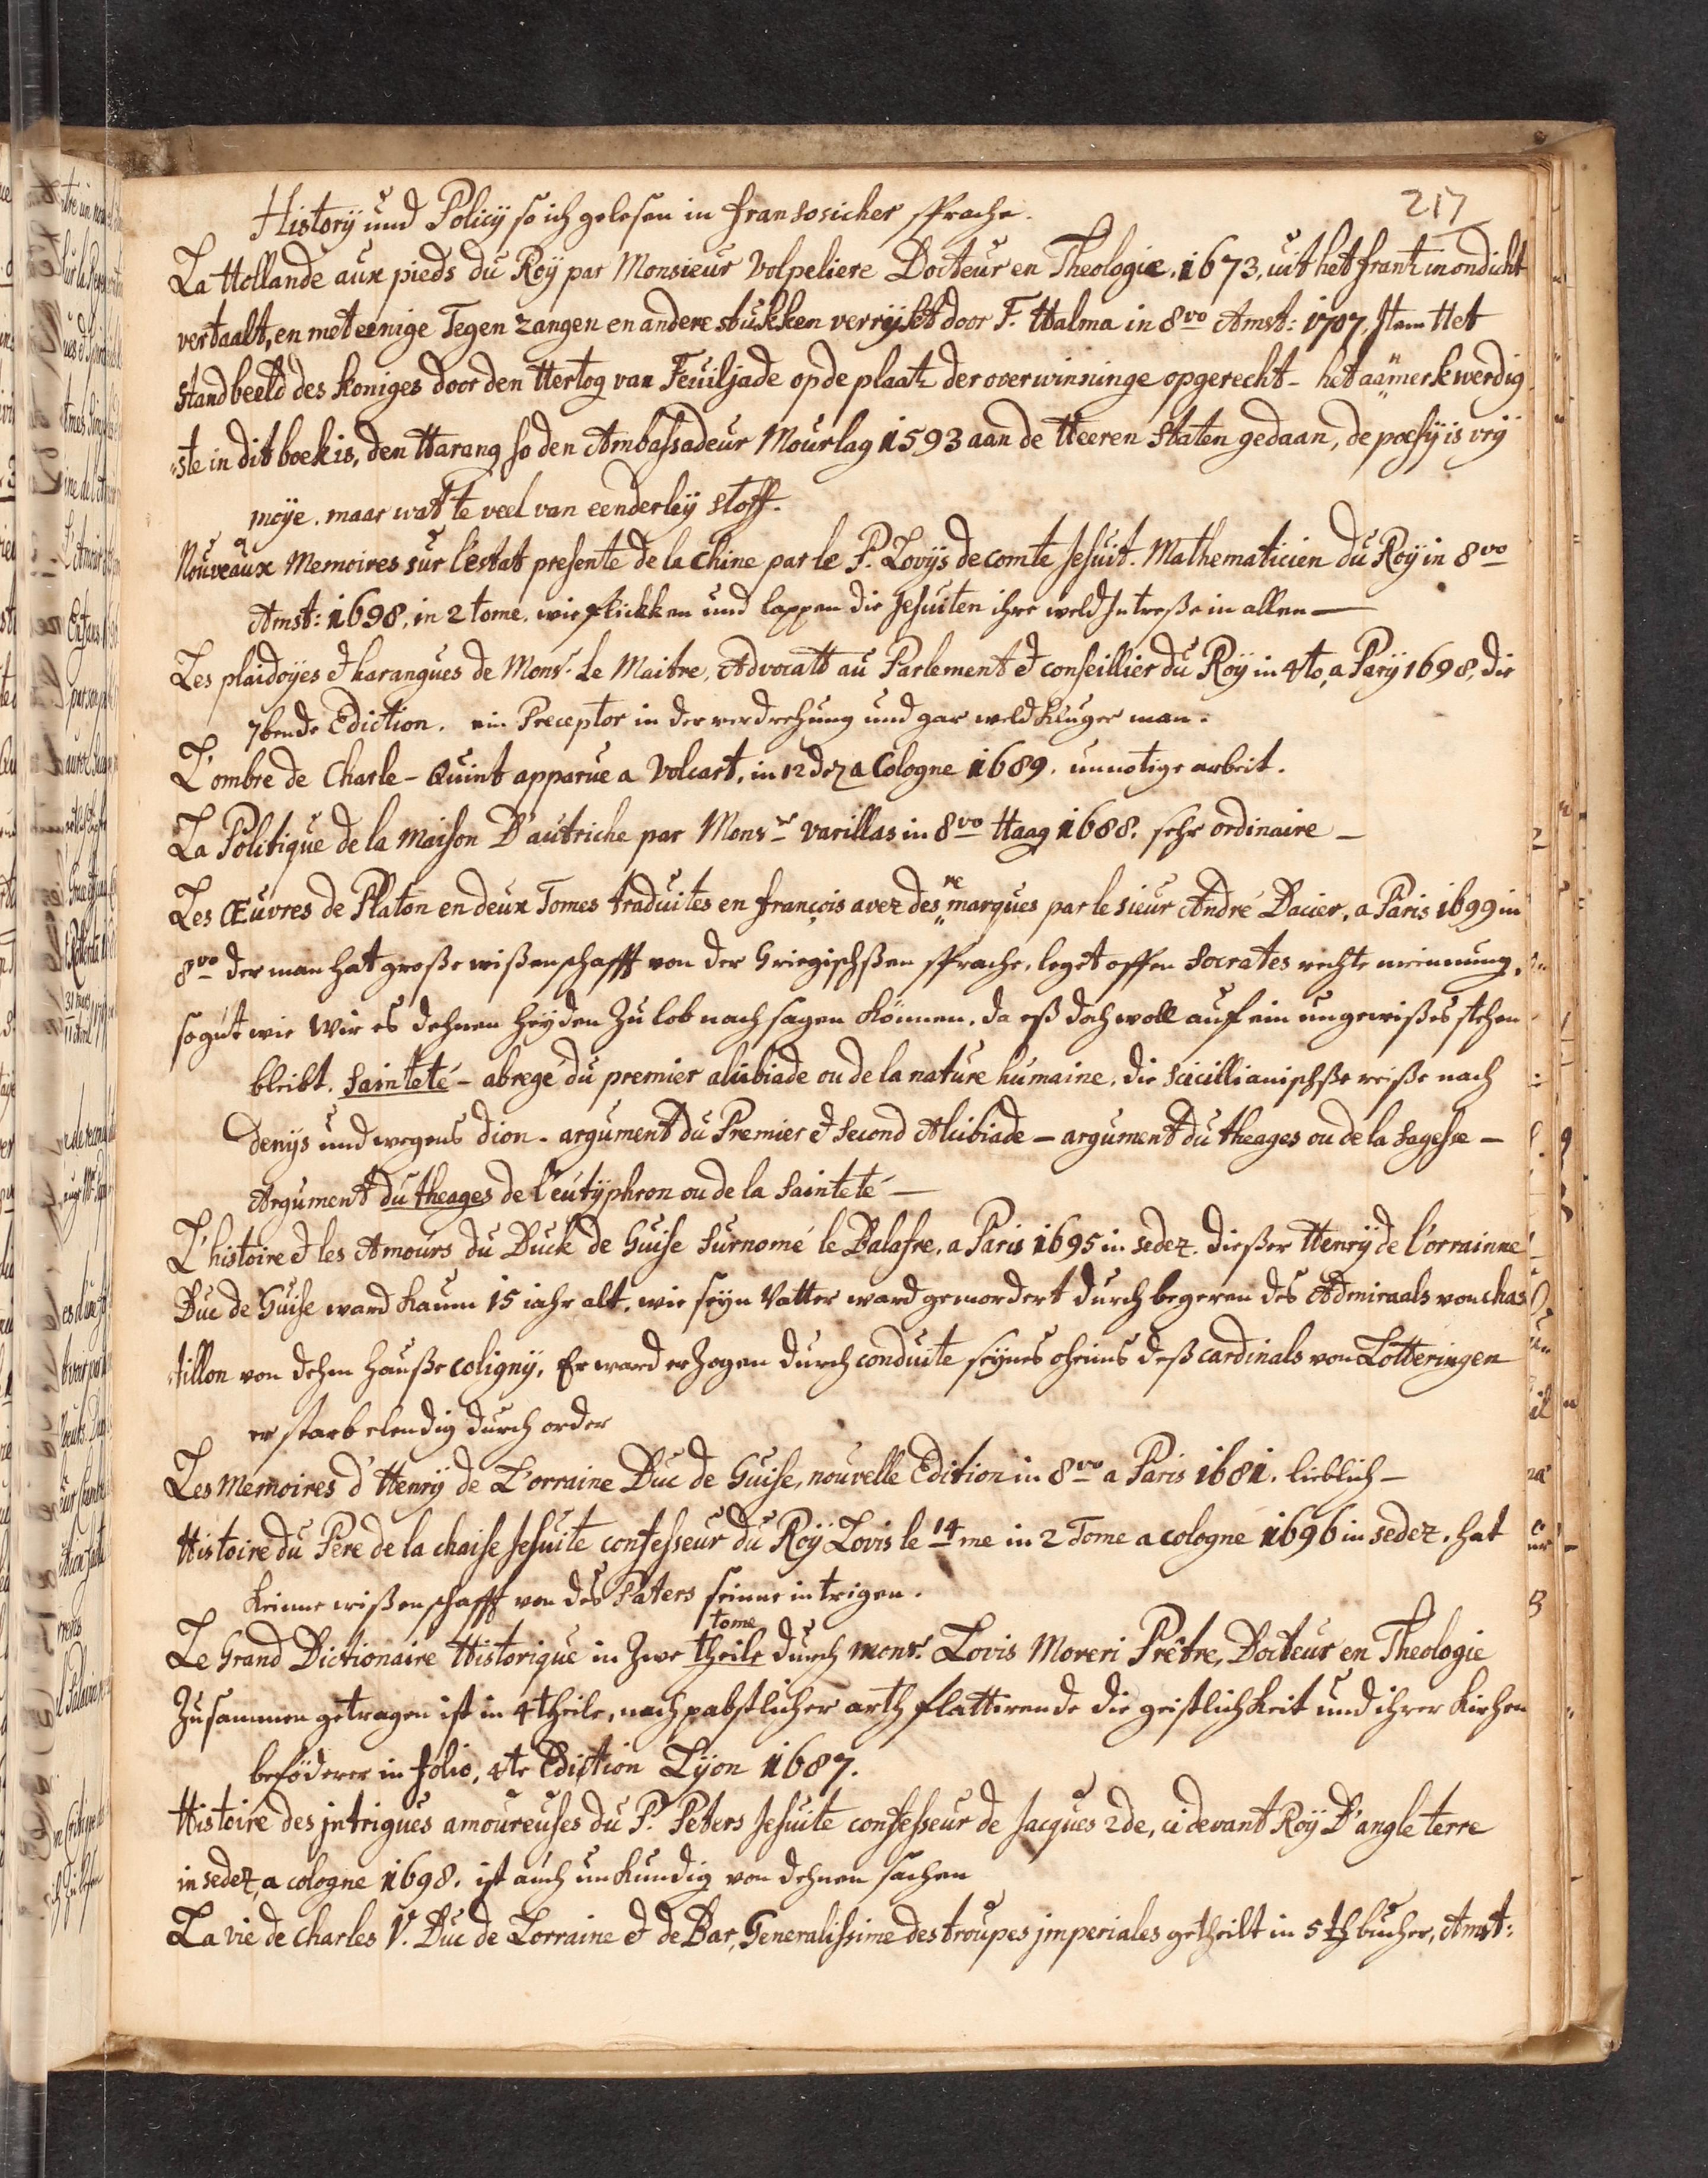 217
Historÿ und Policÿ so ich gelesen in fransosicher sprache.
La Hollande aux pieds du Roÿ par Monsieur Volpeliere Docteur en Theologie. 1673, uit het frantz in ondicht
vertaalt, en met eenige Tegen zangen en andere stukken verrÿkt door F. Halma in 8vo Amst: 1707. Item Het
standbeeld des koniges door den Hertog van Feuiljade op de plaatz der overwinninge opgerecht - het aämerkwerdig
ste in dit boek is, den Harang so den Ambassadeur Mourlag 1593 aan de Heeren Staten gedaan, de poesÿ is vrÿ
moÿe. maar wat te veel van eenderleÿ stoff.
Nouveaux Memoires sur l'estat presente de la Chine par le P. Lovÿs de comte Jesuit. Mathematicien du Roÿ in 8vo
Amst: 1698. in 2 tome. wie flickken und lappen die Jesuiten ihre weld Intresse in allen —
Les plaidoÿes et harangues de Monsr. Le Maitre, Advocatt au Parlement et conseillier du Roÿ in 4to, a Parÿ 1698, die
7bende Ediction. ein Preceptor in der verdrehung und gar weld kluger man.
L'ombre de Charle-Quint apparue a Volcart, in 12dez a Cologne 1689. unnotige arbeit.
La Politique de la maison D'autriche par Monsr varillas in 8vo Haag 1688. sehr ordinaire —
Les Œuvres de Platon en deux Tomes traduites en françois avez des remarques par le sieur André Dacier, a Paris 1699 in
8vo der man hat grosse wissenschafft von der Griegischssen sprache, leget offen Socrates rechte meinnung,
so gut wie Wir es dehnen Heÿden zu lob nach sagen können. da ess doch woll auf ein ungewisses stehen
bleibt. Sainteté - abregé du premier alcibiade ou de la nature humaine. die Scicillianischsse reisse nach
Denÿs und wegens dion - argument du Premier et second Alcibiade — argument du theages ou de la sagesse —
Argument du theages de l'eutÿphron ou de la Sainteté —
L'histoire et les Amours du Duck de Guise Surnomé le Balafre, a Paris 1695 in sedez. diesser Henrÿ de l'orrainne
Duc de Guise ward kaum 15 iahr alt. wie seÿn Vatter ward gemordert durch begeren des Admiraals von chas
tillon von dehm Hausse colignÿ. Er ward erzogen durch conduite seÿnes oheims dess cardinals von Lotteringen
er starb elendig durch order
Les memoires d'Henrÿ de L'orraine Duc de Guise, nouvelle Edition in 8vo a Paris 1681. lieblich —
Histoire du Pere de la chaise Jesuite confesseur du Roÿ Lovis le 14me in 2 Tome a cologne 1696 in sedez. hat
keinne wissenschafft von des Paters seinne intrigen.
Le Grand Dictionaire Historique in zwe theile tome durch monsr. Lovis Moreri Prêtre, Docteur en Theologie
zusammen getragen ist in 4 theile, nach pabstlicher arth flattirende die geistlichkeit und ihrer kirchen
beföderer in folio, 4te Ediction Lÿon 1687.
Histoire des intrigues amoureuses du P. Peters Jesuite confesseur de Jacques 2de, ci devant Roÿ D'angleterre
in sedez, a cologne 1698. ist auch unkundig von dehnen sachen
La vie de Charles V. Duc de Lorraine et de Bar, Generalissime des troupes imperiales getheilt in 5 th bucher, Amst: